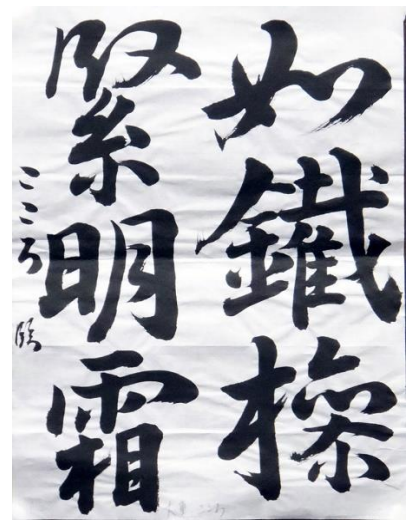 如鐵操
緊明霜
こころ 臨